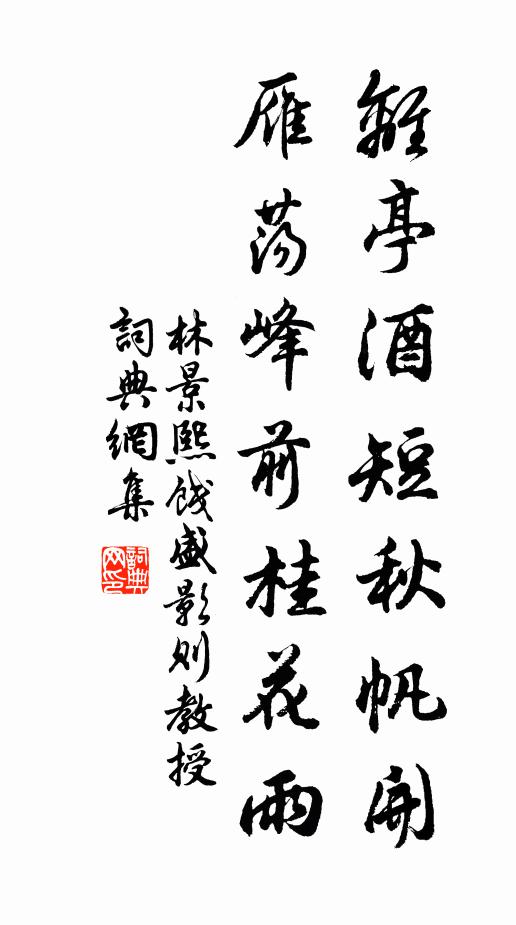 離亭酒短秋帆開
雁蕩峰前桂花雨
林景熙餞盛影則教授
詞典網集
詞典網印